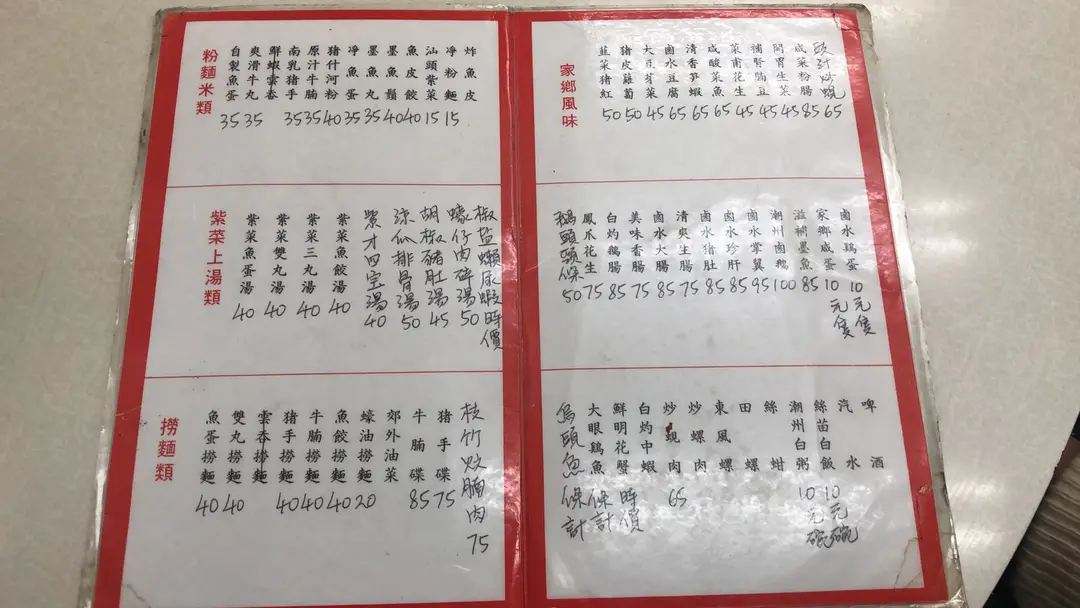 粉麵米類
自製魚蛋 35
爽滑牛丸 35
鮮蝦雲吞
南乳猪手 35
原汁牛腩 35
猪什河粉 40
凈魚蛋 35
墨魚丸 35
墨魚鬚 40
魚皮餃 40
汕頭紫菜 15
凈粉麵 15
炸魚皮
紫菜上湯類
紫菜魚蛋湯 40
紫菜雙丸湯 40
紫菜三丸湯 40
紫菜魚餃湯 40
紫才四宝湯 40
涼瓜排骨湯 50
胡椒豬肚湯 45
蠔仔肉碎湯 50
椒盐瀨尿蝦時價
撈麵類
魚蛋撈麵 40
雙丸撈麵 40
雲吞撈麵
猪手撈麵 40
牛腩撈麵 40
魚餃撈麵 40
蠔油撈麵 20
郊外油菜
牛腩碟 85
猪手碟 75
枝竹炆腩肉 75
家鄉風味
韮菜猪紅 50
猪皮蘿蔔 50
大豆芽菜 45
鹵水豆腐 65
清香笋蝦 65
咸酸菜魚 65
菜甫花生 45
補腎豆 45
開胃生菜 45
咸菜粉腸 85
豉汁炒蜆 65
鵝頭頸條 50
鳳爪花生 75
白灼鵝腸 85
美味香腸 75
鹵水大腸 85
清爽生腸 75
鹵水猪肚 85
鹵水珍肝 85
鹵水掌翼 95
潮州鹵鵝 100
滋補墨魚 85
家鄉咸蛋 10元隻
鹵水鷄蛋 10元隻
烏頭魚條計
大眼鷄魚條計
鮮明花蟹時價
白灼中蝦
炒蜆肉 65
炒螺肉
東風螺
田螺
絲蚶
潮州白粥 10元碗
絲苗白飯 10元碗
汽水
啤酒